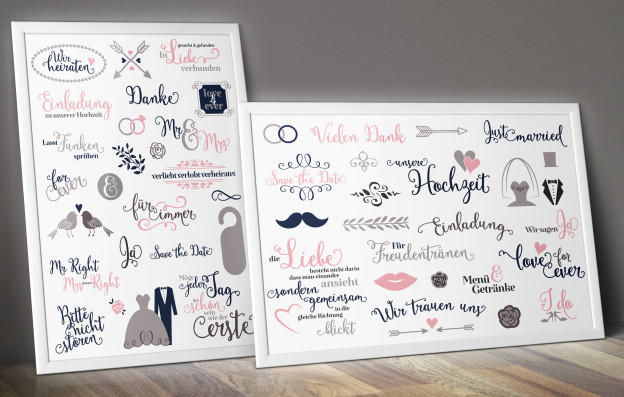 Wir
heiraten
gesucht & gefunden
In Liebe
verbunden
Einladung
zu unserer Hochzeit
Danke
love
4
ever
Mr
&
Mrs
Lasst Funken
sprühen
for
ever
&
verliebt verlobt verheiratet
für
immer
Ja
Save the Date
Mr Right
Mrs Right
Möge
jeder Tag
so schön
sein
wie der
erste
Bitte
nicht
stören
Vielen Dank
Just married
Save the Date
unsere
Hochzeit
Einladung
Wir sagen Ja
die Liebe
besteht nicht darin
dass man einander
ansieht
sondern
gemeinsam
in die
gleiche Richtung
blickt
Für
Freudentränen
Love for
ever
Menü &
Getränke
Wir trauen uns
I do